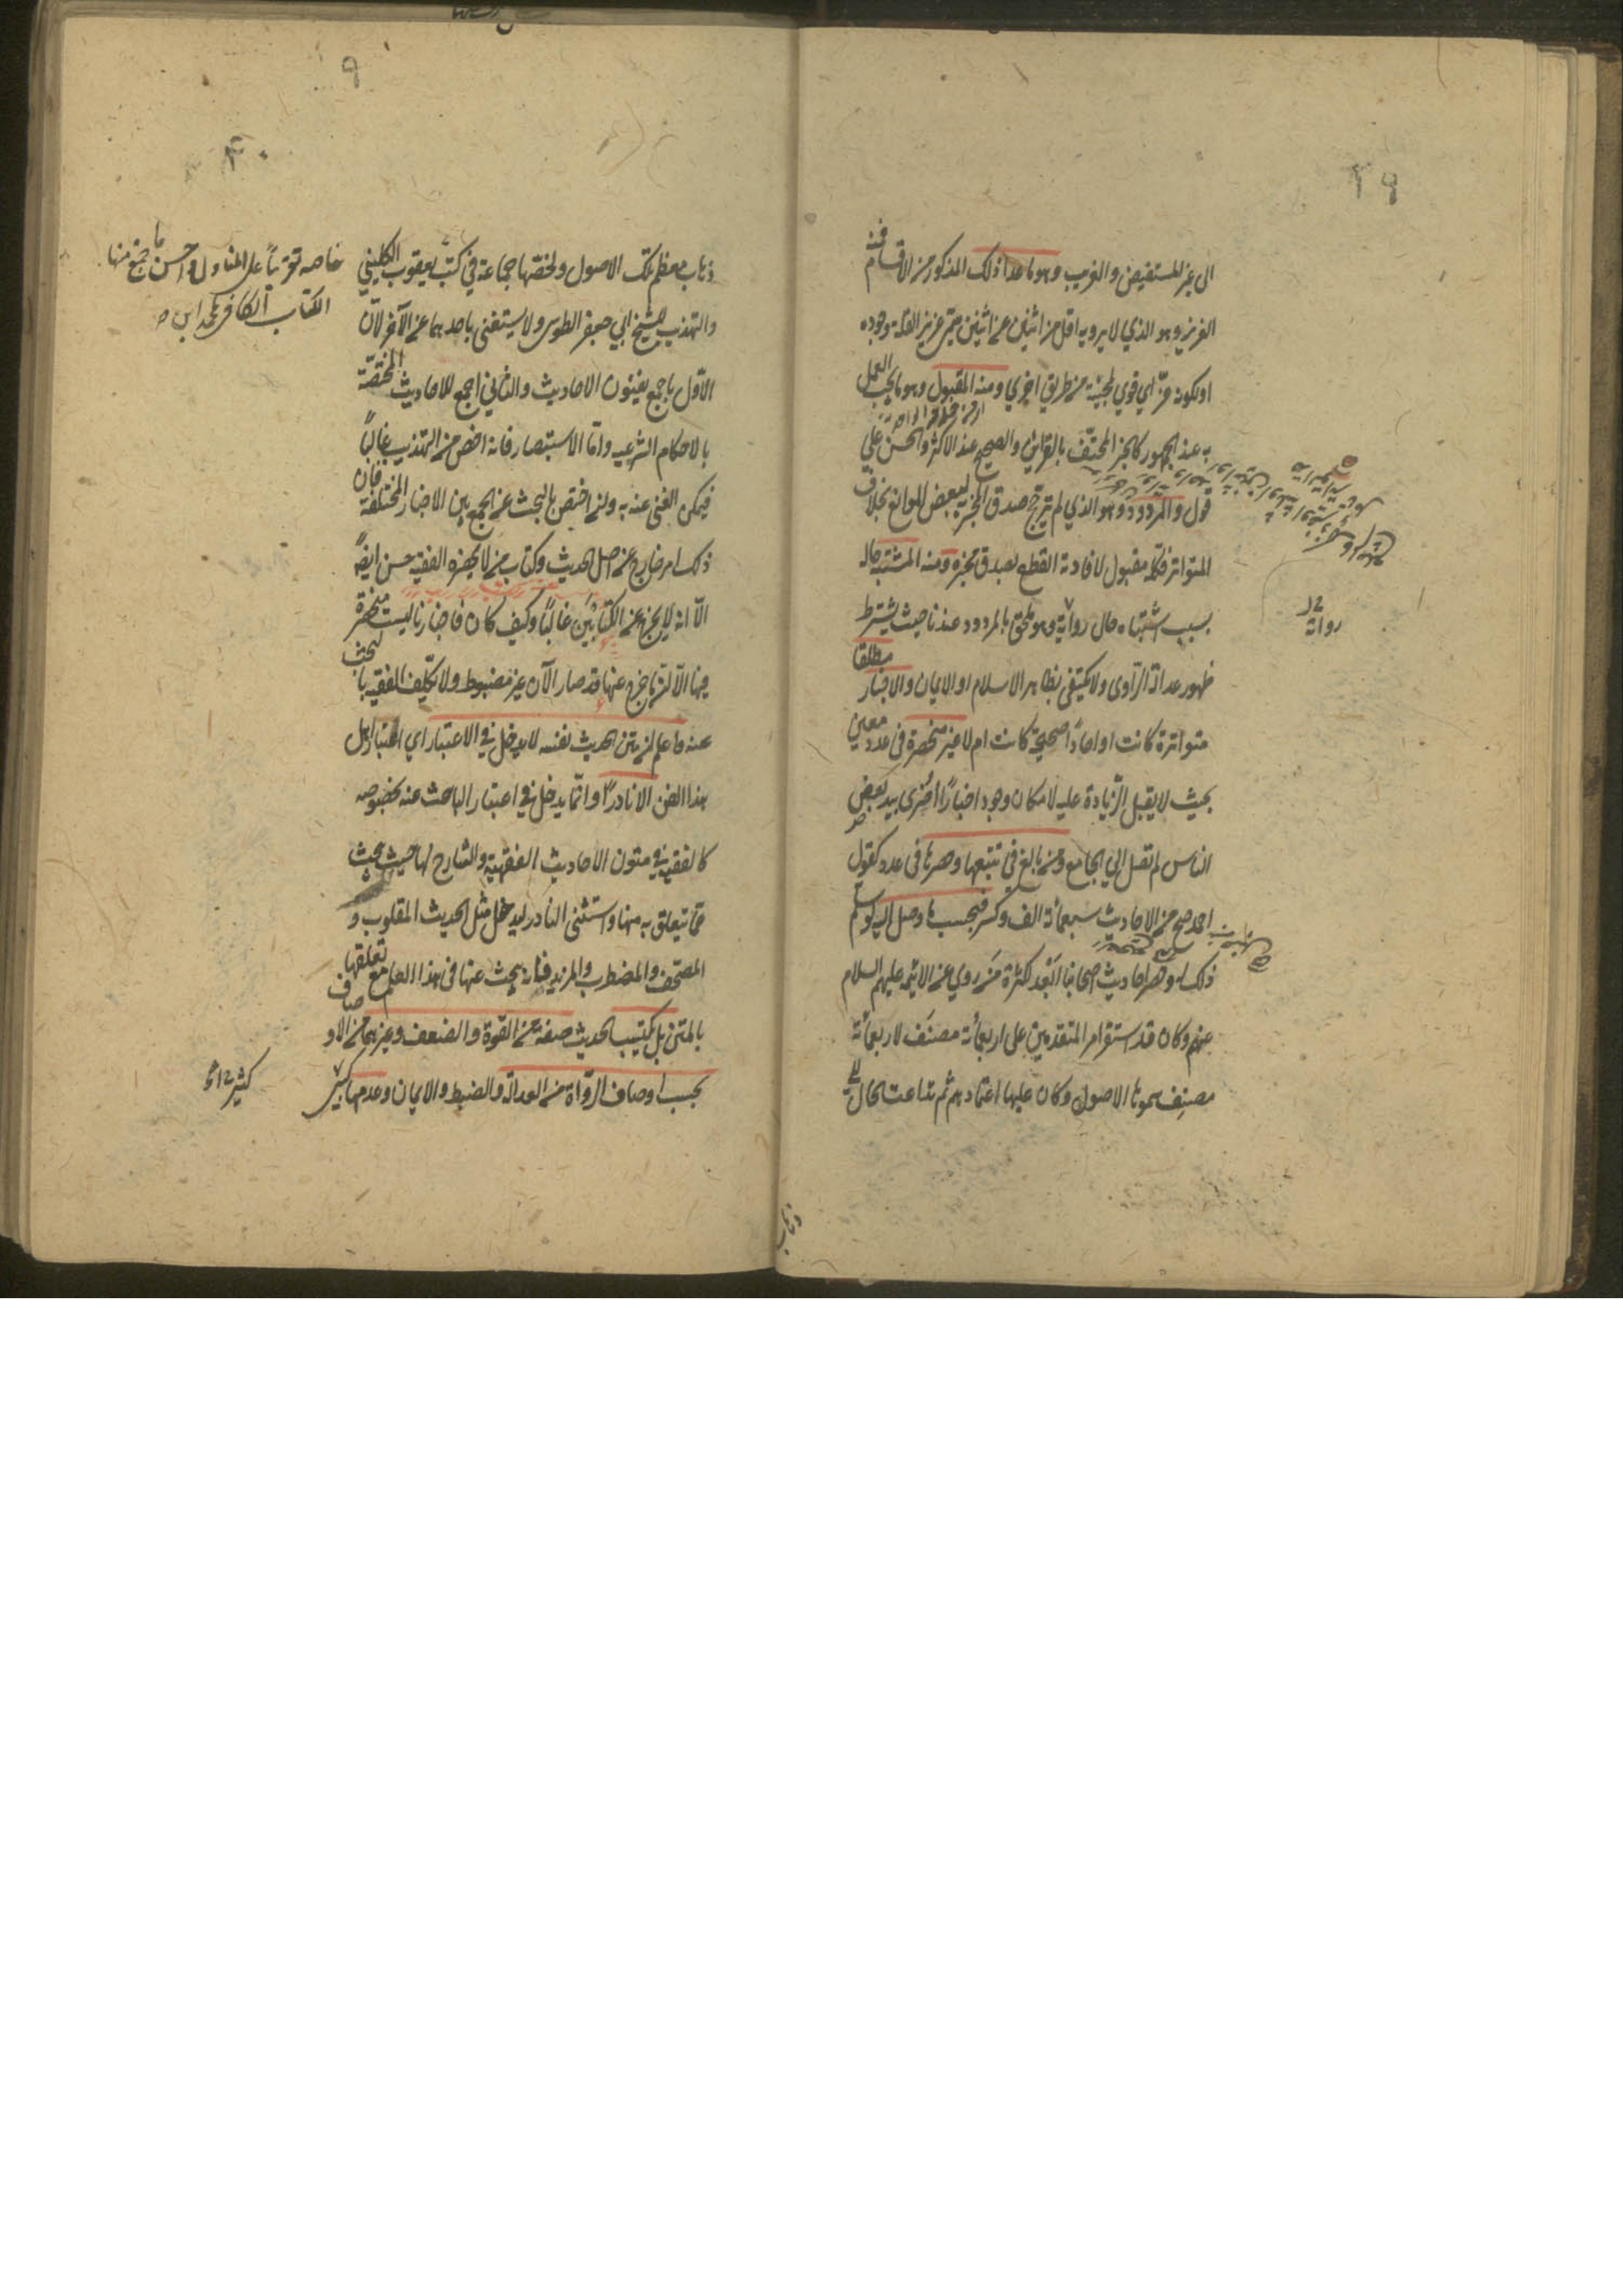 ٢٩
الى غير المستفيض والغريب وهو ما عدا ذلك المذكور من الاقسام فمنه
العزيز وهو الذي لا يرويه اقل من اثنين عن اثنين سمّي عزيزا لقلة وجوده
او لكونه عزّ اي قوي لمجيئه من طريق اخري ومنه المقبول وهو ما يجب العمل
به عند الجمهور كالخبر المحتفّ بالقراين والصحيح عند الاكثر والحسن علي
قول والمردود وهو الذي لم يترجح صدق المخبر به لبعض الموانع بخلاف
المتواتر فكله مقبول لافادته القطع بصدق مخبره ومنه المشتبه حاله
بسبب اشتباه حال روايه وهو ملحق بالمردود عندنا حيث يشترط
ظهور عدالة الراوى ولا يكتفي بظاهر الاسلام او الايمان والاخبار مطلقا
متواترة كانت او احادًا صحيحة كانت ام لا غير منحصرة فى عدد معين
بحيث لا يقبل الزيادة عليه لامكان وجود اخبارًا اخرى بيد بعض
الناس لم تصل الي الجامع ومن بالغ في تتبعها وحصرها فى عدد كقول
احمد صح من الاحاديث سبعمائة الف وكسر فبحسب ما وصل اليه ولو سلم
ذلك وحصر احاديث اصحابنا ابعد لكثرة من روي عن الائمه عليهم السلام
عنهم وكان قد استقر امر المتقدمين على اربعمائة مصنَف لاربعمائة
مصنِف سموها الاصول وكان عليها اعتمادهم ثم تداعت الحال الي
رواته
ذهاب
٩
٤٠
ذهاب معظم تلك الاصول ولخصّها جماعة في كتب يعقوب الكليني
والتهذيب للشيخ ابي جعفر الطوسي ولا يستغنى باحدهما عن الآخر لان
الاوّل اجمع لفنون الاحاديث والثاني اجمع للاحاديث المختصّة
بالاحكام الشرعيه وامّا الاستبصار فانه اخص من التهذيب غالبًا
فيمكن الغنى عنه به وان اختص بالبحث عن الجمع بين الاخبار المختلفة فان
ذلك امر خارج عن اصل الحديث وكتاب من لا يحضره الفقيه حسن ايضًا
الّا انه لا يخرج عن الكتابَيْن غالبًا وكيف كان فاخبارنا ليست منحصرة
فيها الّا ان ما خرج عنها قد صار الآن غير مضبوط ولا يكلّف الفقيه بالبحث
عنه واعلم ان متن الحديث نفسه لا يدخل في الاعتبار اي اعتبار اهل
هذا الفن الا نادرًا وانما يدخل في اعتبار الباحث عنه بخصوصه
كالفقيه في متون الاحاديث الفقهية والشارح لها حيث يبحث
عمّا يتعلق به منها واستثنى النادر ليدخل مثل الحديث المقلوب و
المصحّف والمضطرب والمزيد فانه يبحث عنها فى هذا العلم مع تعلقها
بالمتن بل يكتسب الحديث صفة من القوة والضعف وغيرهما من الاوصاف
بحسب اوصاف الرواة من العدالة والضبط والايمان وعدمها كثير
خاصه تقريبًا على المتناول واحسن ما جمع منها
الكتاب الكافى لمحمد ابن